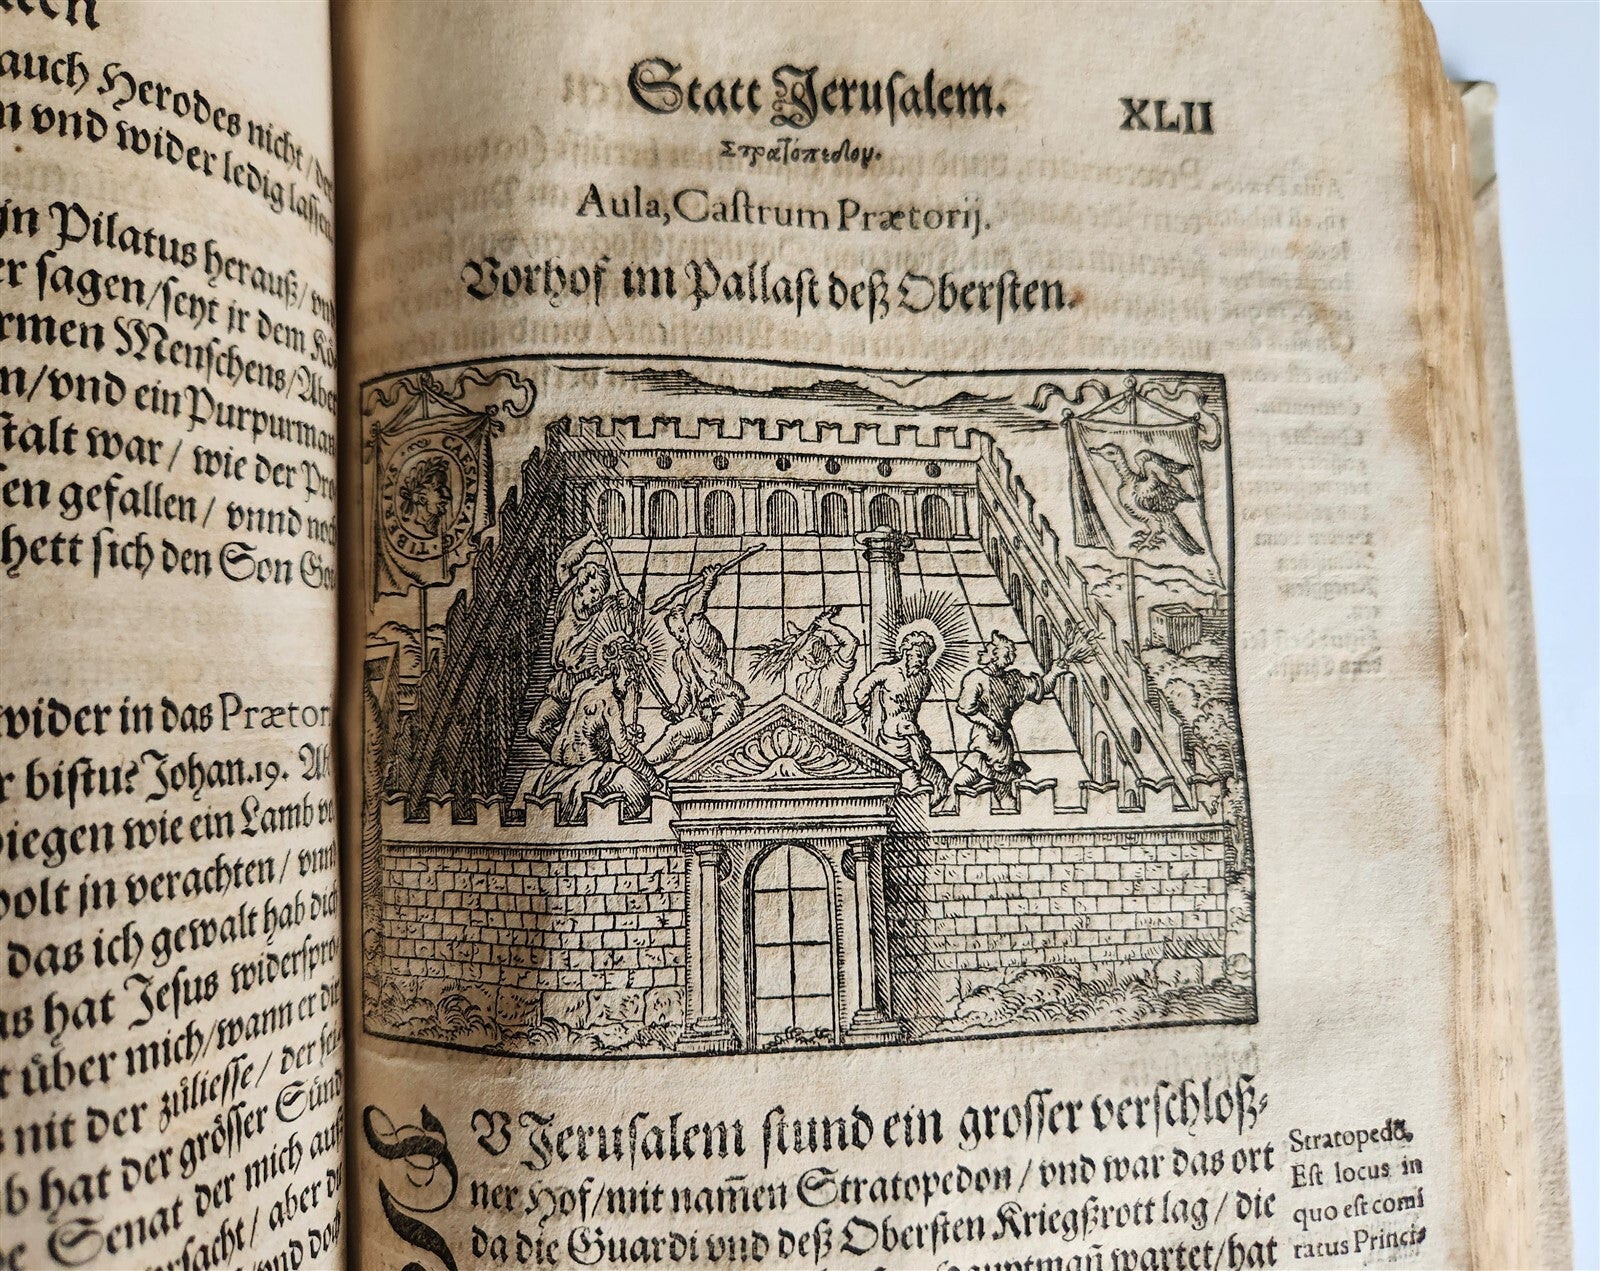 auch Herodes nicht / der
n vnd wider ledig lassen
jn Pilatus herauß / vnd
er sagen / seyt jr dem Kö-
rmen Menschens / Aber
n / vnd ein Purpurman
stalt war / wie der Pro
sen gefallen / vnnd noch
hett sich den Son Got
wider in das Prætori
r bistu? Johan. 19. Ab
iegen wie ein Lamb vo
olt jn verachten / vnn
das ich gewalt hab dich
as hat Jesus widerspro
t über mich / wann er dir
mit der züliesse / der sel
b hat der grösser Sünd
Senat der mich auß
rsacht / aber du
vnd doch
Statt Jerusalem.
XLII
Στρατόπεδον.
Aula, Castrum Prætorij.
Vorhof im Pallast deß Obersten.
TIBERIVS CAESAR AVG
ZV Jerusalem stund ein grosser verschloß-
ner Hof / mit nam̃en Stratopedon / vnd war das ort
da die Guardi vnd deß Obersten Kriegßrott lag / die
hauptmañ wartet / hat
Stratopedõ.
Est locus in
quo est comi
ratus Princi-